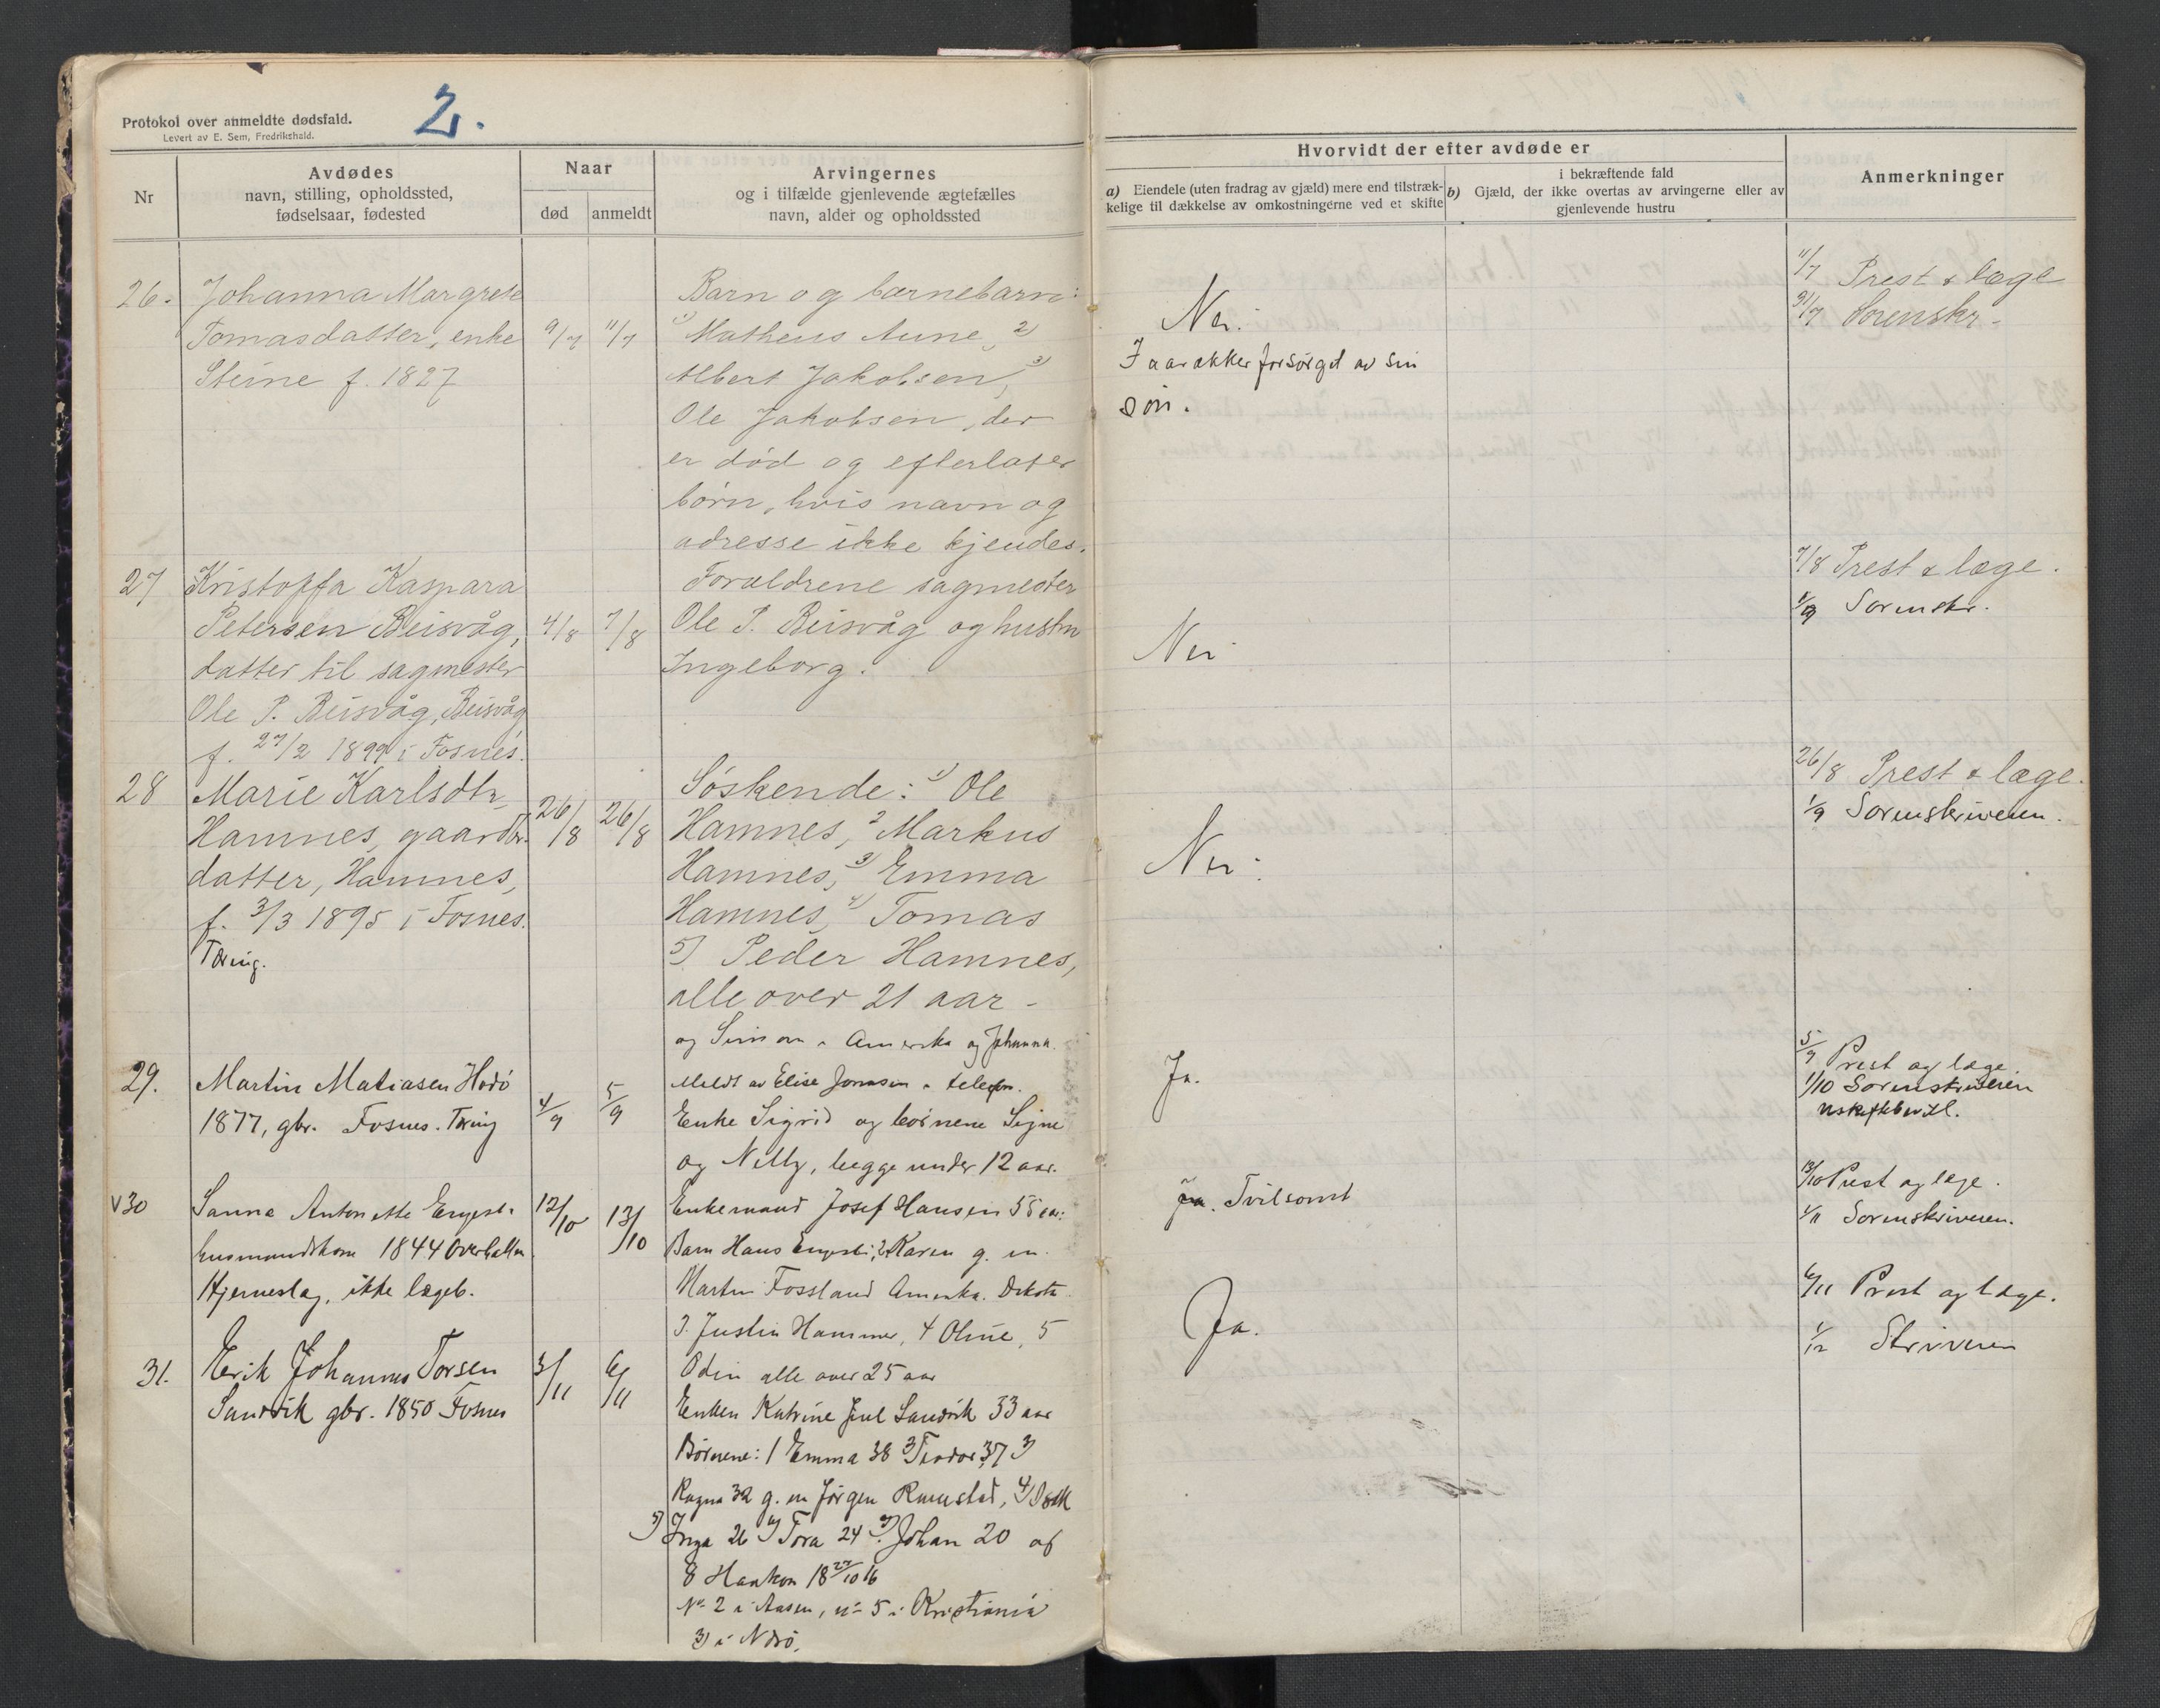 Protokol over anmeldte dødsfald.
Levert av E. Sem, Fredrikshald.
2.
Nr
Avdødes
navn, stilling, opholdssted,
fødselsaar, fødested
Naar
død
anmeldt
Arvingernes
og i tilfælde gjenlevende ægtefælles
navn, alder og opholdssted
Hvorvidt der efter avdøde er
a) Eiendele (uten fradrag av gjæld) mere end tilstræk-
kelige til dækkelse av omkostningerne ved et skifte
i bekræftende fald
b) Gjæld, der ikke overtas av arvingerne eller av
gjenlevende hustru
Anmerkninger
26.
Johanna Margrete
Tomasdatter, enke
Steine f. 1827
9/7
11/7
Barn og barnebarn:
1) Matheus Aune, 2)
Albert Jakobsen, 3)
Ole Jakobsen, der
er död og efterlater
börn, hvis navn og
adresse ikke kjendes.
Nei.
I aarækker forsörget av sin
sön.
11/7 Prest & læge
31/7 Sorenskr.
27
Kristoffa Kaspara
Petersen Beisvåg,
datter til sagmester
Ole P. Beisvåg, Beisvåg
f. 27/2 1899 i Fosnes.
4/8
7/8
Forældrene sagmester
Ole P. Beisvåg og hustru
Ingeborg.
Nei
7/8 Prest & læge.
1/9 Sorenskr.
28
Marie Karlsdtr.
Hamnes, gaardbr.
datter, Hamnes,
f. 3/3 1895 i Fosnes.
Tæring.
26/8
26/8
Söskende: 1) Ole
Hamnes, 2 Markus
Hamnes, 3) Emma
Hamnes, 4) Tomas
5) Peder Hamnes,
alle over 21 aar -
og Simon i Amerika og Johanna.
Meldt av Elise Jonassen i telefon.
Nei.
26/8 Prest & læge.
1/9 Sorenskriveren.
29.
Martin Matiasen Hodö
1877, gbr. Fosnes. Tæring
4/9
5/9
Enke Sigrid og börnene Signe
og Nelly, begge under 12 aar.
Ja.
5/9 Prest og læge.
1/10 Sorenskriveren
uskiftebevil.
v30
Sanna Antonette Engest.
husmandskone 1844 Overhallen.
Hjerneslag, ikke lægeb.
12/10
13/10
Enkemand Josef Hansen 58 aar.
Barn Hans Engesti, 2 Karen g. m.
Martin Fossland Amerika. Dakota
3. Justin Hammer, 4 Oline, 5
Odin alle over 25 aar
Ja. Tvilsomt
13/10 Prest og læge.
1/11 Sorenskriveren.
31.
Erik Johannes Torsen
Sandvik gbr. 1850 Fosnes
3/11
6/11
Enken Katrine Juul Sandvik 33 aar
Börnene: 1 Emma 38 3 Teodor 37 3)
Ragna 32 g. m Jörgen Ramstad, 4)
5) Inga 26 6) Tora 24 7) Johan 20 af
8 Haakon 18 27/10 16
No 2 i Aasen, n= 5 i Kristiania
3) i Nærö.
Ja.
6/11 Prest og læge.
1/12 Skriveren